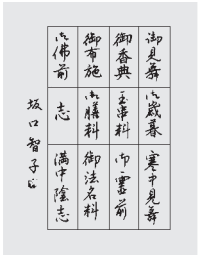 御見舞
御歳暮
寒中見舞
御香典
玉串料
御霊前
御布施
御膳料
御法名料
御佛前
志
満中陰志
坂口智子